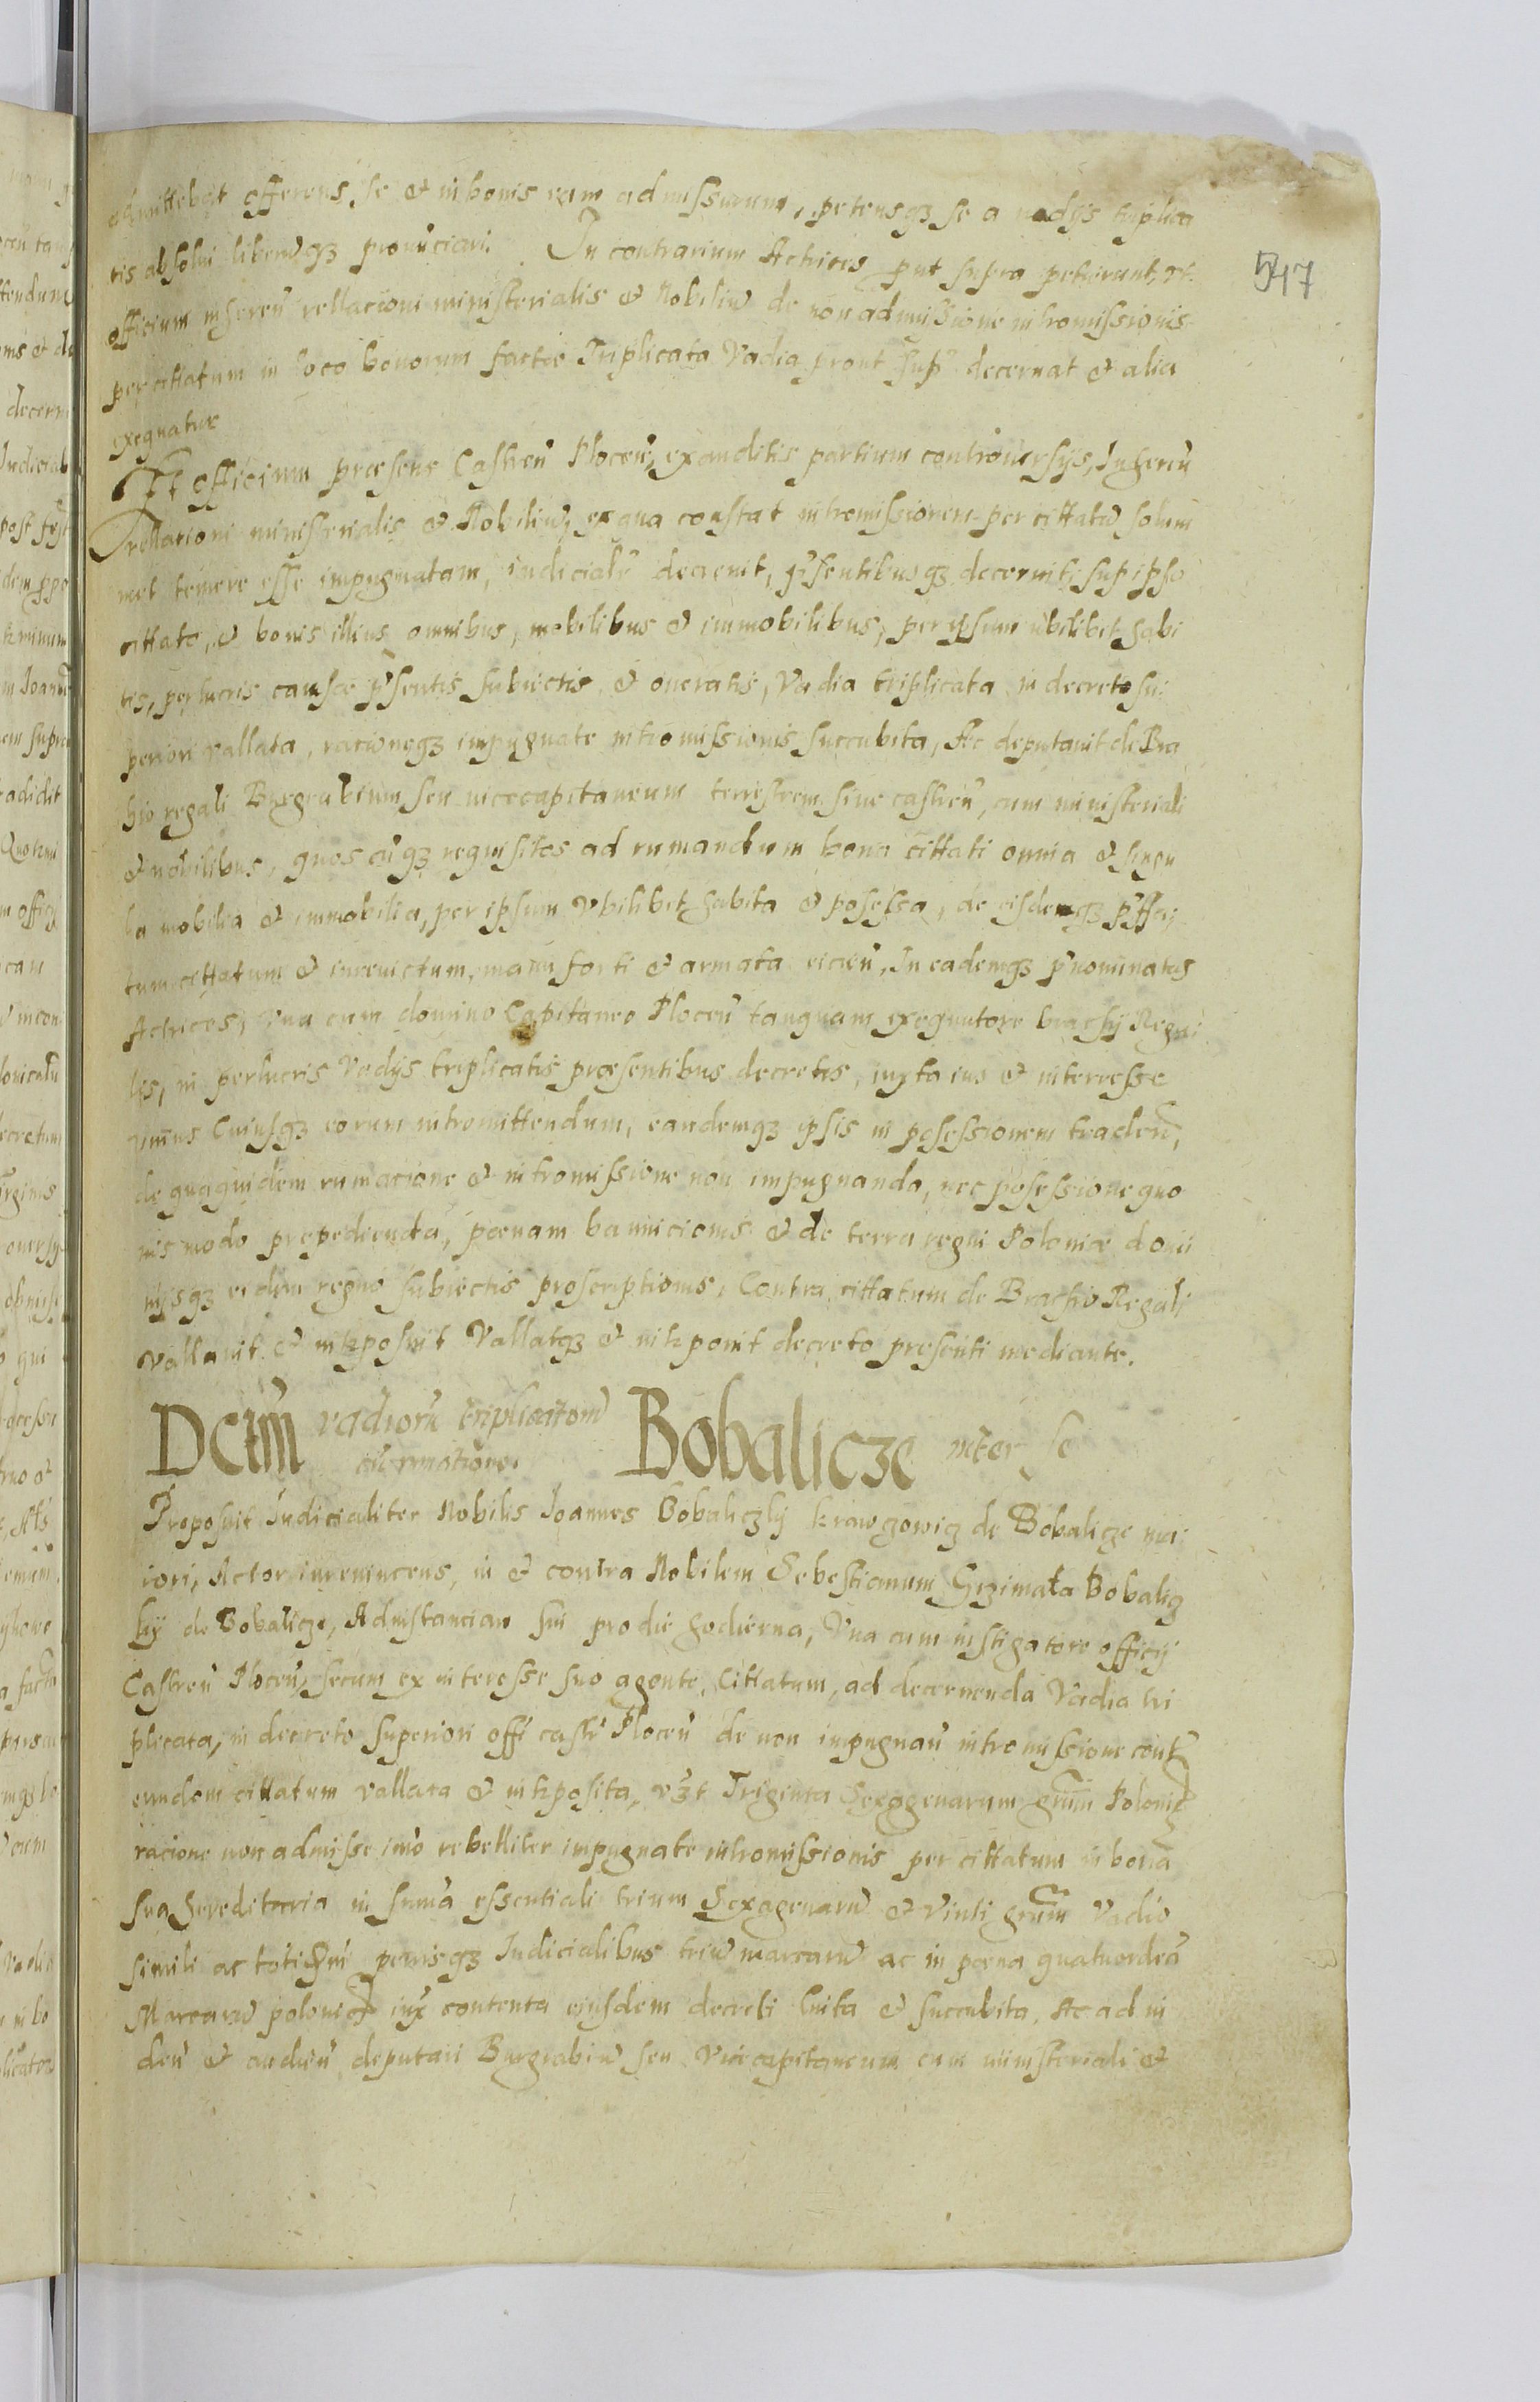 admittebat offerens se et in bonis eam admissurum, petensq3 se a vadijs triplica
tis absolui liberuq3 pronunciari. In contrarium Actrices put supra petierunt, vt
547
officium inheren rellacioni ministerialis et Nobiliu de non admissione intromissionis
per cittatum in loco bonorum factae Triplicata Vadia prout sup decernat et alia
exequatur
Et officium praesens Castren Plocen, exauditis partium controuersijs, Inheren
rellacioni ministerialis et Nobiliu, ex qua constat intromissionem per cittatu solum
met temere esse impugnatam, iudicialr decreuit, psentibusq3 decernit, sup ipso
cittato, et bonis illius omnibus, mobilibus et immobilibus, per ipsum vbilibet habi
tis, perlucris causae psentis subiectis et oneratis, Vadia triplicata in decreto su
periori vallata, racioneq3 impugnate intromissionis succubita, Ac deputauit de Bra
hio regali Burgrabium seu vicecapitaneum terrestrem siue castren, cum ministeriali
et nobilibus, quos cuq3 requisitos ad rumandum bona cittati omnia et singu
la mobilia et immobilia, per ipsum vbilibet habita et posessa, de eisdemq3
tum cittatum et inreuictum, manu forti et armata eicien, In eademq3 pnominatas
Actrices, vna cum domino Capitaneo Plocen tanquam exequutore brachij Rega
lis, in perlucris Vadijs triplicatis praesentibus decretis, iuxta ius et interesse
vnius Cuiusq3 eorum intromittendum, eandemq3 ipsis in posessionem traden,
de quaquidem rumacione et intromissione non impugnanda, nec posessione quo
uis modo prepedienda, poenam bannicionis et de terra regni Poloniae domi
nijsq3 eidem regno subiectis proscriptionis, Contra cittatum de Brachio Regali
vallauit et intposuit Vallatq3 et intponit decreto presenti mediante.
Dctm vadioru triplicatoru
Bobalicze inter se
Proposuit Iudicialiter Nobilis Joannes Bobaliczky krawczowicz de Bobalicze ma
iori, Actor inreuincens, in et contra Nobilem Sebestianum Grzimala Bobalicz
ky de Bobalicze, Ad instanciam sui pro die hodierna, Vna cum instigatore officij
Castren Plocen, secum ex interesse suo agente, Cittatum, ad decernenda Vadia tri
plicata, in decreto superiori offi castr Plocen de non impugnan intromissione cont
eundem cittatum vallata et intposita, vzt Triginta Sexagenarum grum Polonic
racione non admisse imo rebelliter impugnate intromissionis per cittatum in bona
sua hereditaria in suma essentiali trium Sexagenaru et Vinti grum Vadio
simili ac totidem penisq3 Iudicialibus triu marcaru ac in poena quatuordeci
Marcaru polonic iux contenta eiusdem decreti luita et succubita, Ac ad vi
den et audien deputari Burgrabiu seu Vicecapitaneum cum ministeriali et